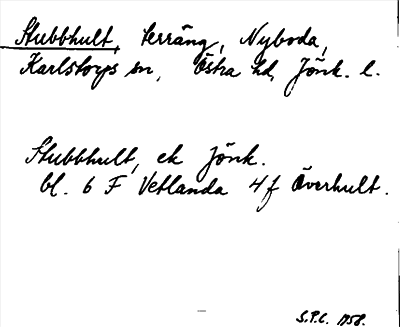 Stubbhult, terräng, Nyboda,
Karlstorps sn, Östra hd, Jönk. l.
Stubbhult, ek Jönk.
bl. 6 F Vetlanda 4f Överhult.
S.P.C. 1958.